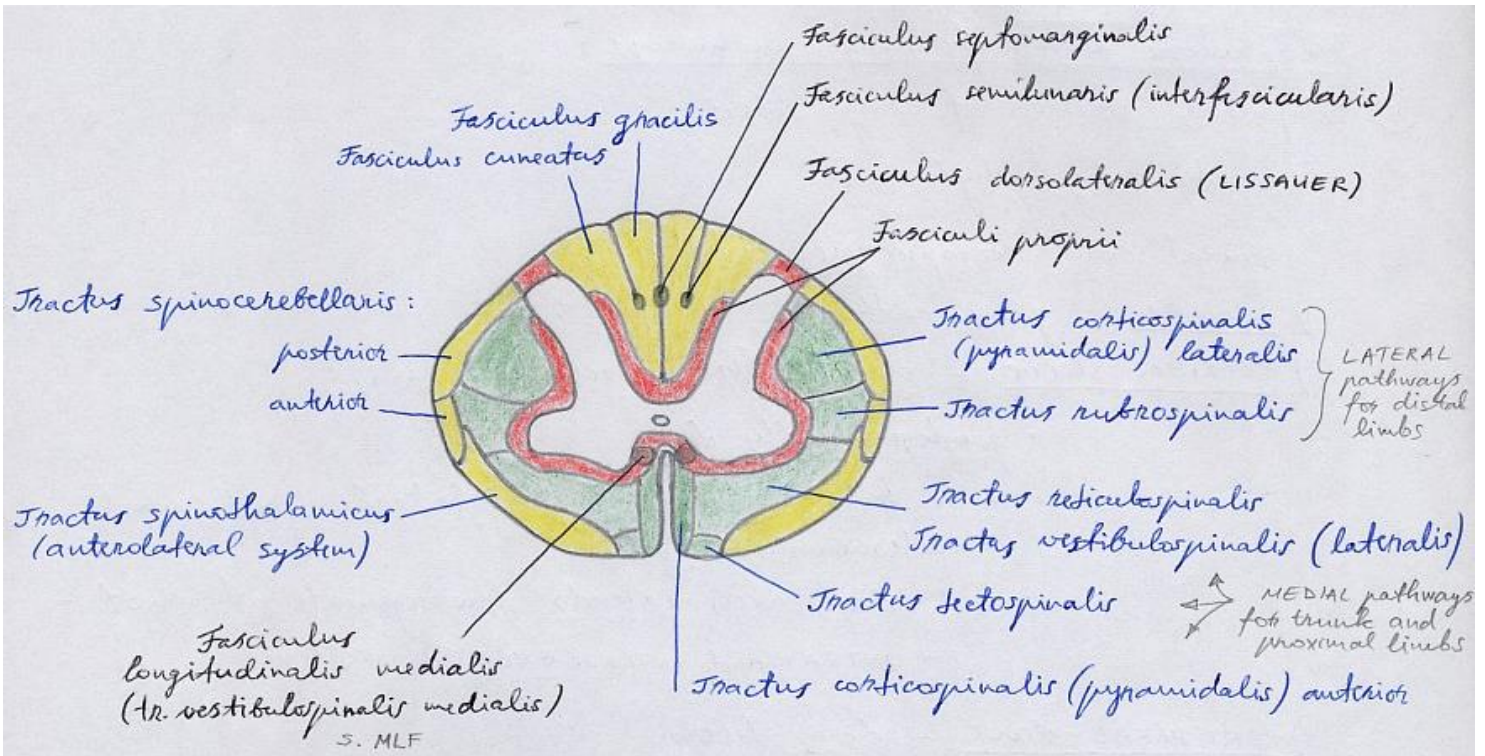 Fasciculus septomarginalis
Fasciculus semilunaris (interfascicularis)
Fasciculus gracilis
Fasciculus cuneatus
Fasciculus dorsolateralis (LISSAUER)
Fasciculi proprii
Tractus spinocerebellaris:
posterior
anterior
Tractus corticospinalis
(pyramidalis) lateralis
Tractus rubrospinalis
LATERAL
pathways
for distal
limbs
Tractus spinothalamicus
(anterolateral system)
Tractus reticulospinalis
Tractus vestibulospinalis (lateralis)
Tractus tectospinalis
MEDIAL pathways
for trunk and
proximal limbs
Fasciculus
longitudinalis medialis
(tr. vestibulospinalis medialis)
s. MLF
Tractus corticospinalis (pyramidalis) anterior